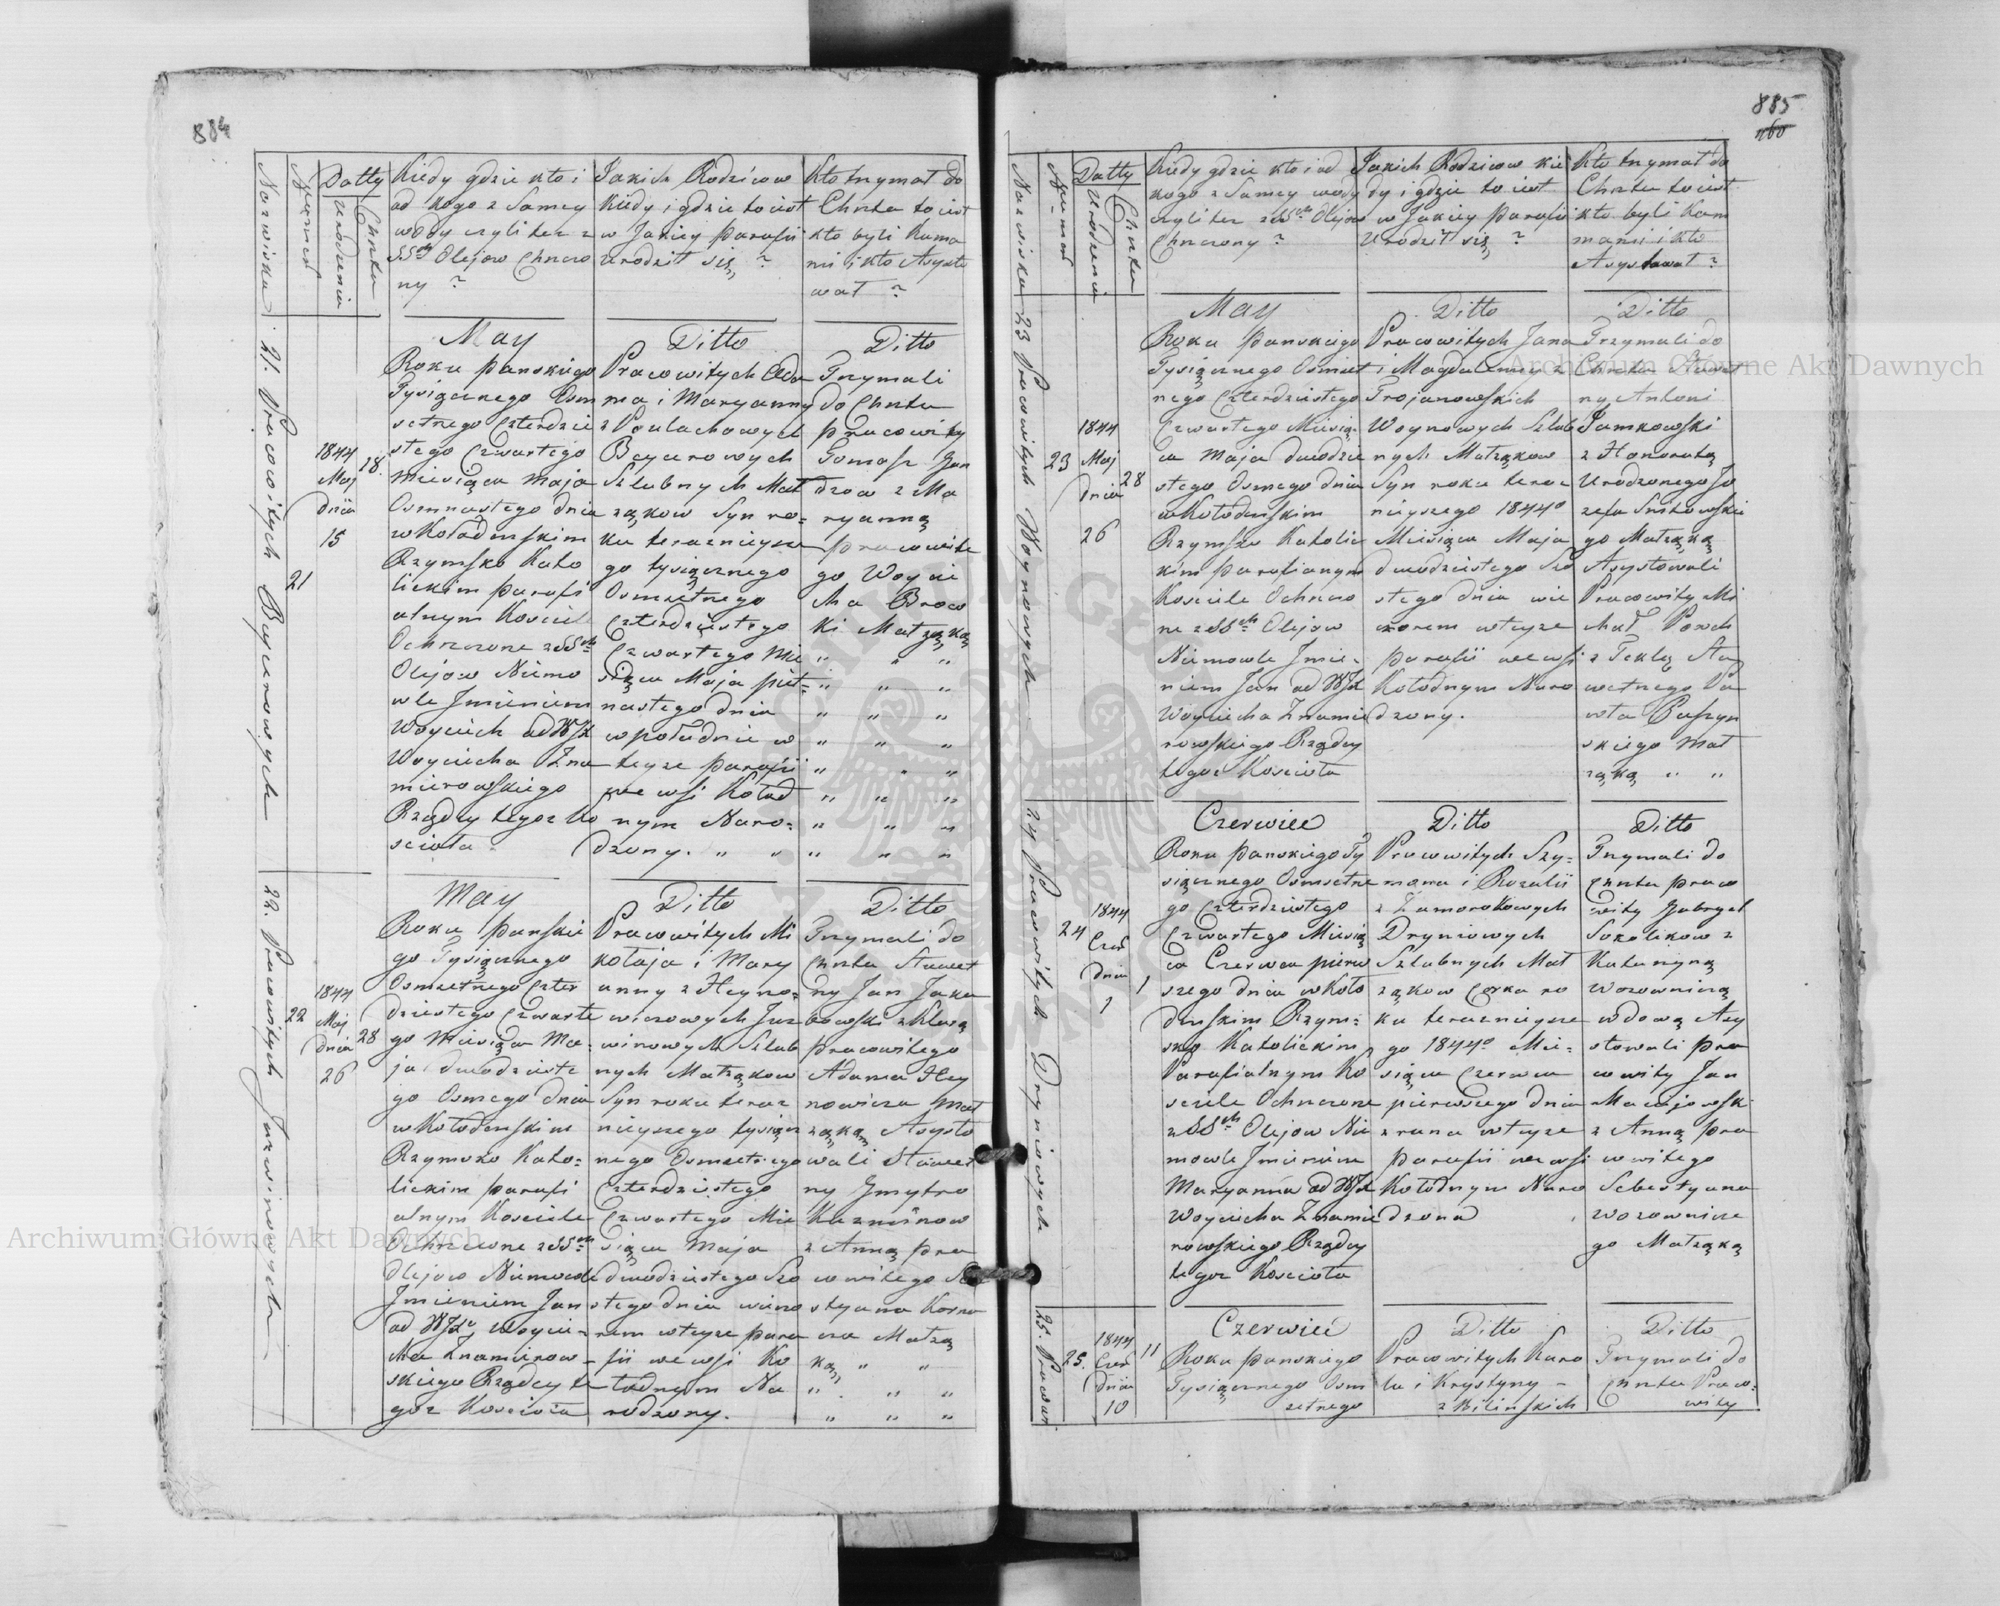 884
Nazwiska
Numera
Datty
Urodzenia
Chrztu
Kiedy gdzie kto i
od kogo z Samey
wody czyli tez z
SSch Olejow Chrzczo
ny ?
Jakich Rodzicow
kiedy i gdzie to iest
w Jakiey Parafii
Urodził się ?
Kto trzymał do
Chrztu to iest
kto byli Kumo
mi i kto Asysto
wał ?
21. Pracowitych Beycerowych
21
1844
Maj
dnia
15
18
May
Roku Panskiego
Tysiącznego Osm
setnego Czterdzie
stego Czwartego
Miesiąca Maja
Osmnastego dnia
w Kołodenskim
Rzymsko Kato
lickim parafi
alnym Kosciele
Ochrzczone z SSch
Olejow Niemo
wle Jmieniem
Woyciech od WJX
Woyciecha Zna
mierowskiego
Rządcy tegoz Ko
scioła
Ditto
Pracowitych Ada
ma i Maryanny
z Poulachowych
Beycerowych
Szlubnych Mał
ząkow Syn ro=
ku teraznieysze
go tysiącznego
Osmsetnego
Czterdziestego
Czwartego Mie
siąca Maja piet=
nastego dnia
w południe w
teyze parafii
we wsi Kołod
nym Naro=
dzony. " "
Ditto
Trzymali
do Chrztu
Pracowity
Tomasz Gun
dzow z Ma
ryanną
pracowite
go Woycie
cha Brow
ki Małząką
" " "
" " "
" " "
" " "
" " "
" " "
" " "
" " "
22. Pracowitych Juzwinowych
22
1844
Maj
dnia
26
28
May
Roku Panskie
go Tysiącznego
Osmsetnego Czter
dziestego Czwarte
go Miesiąca Ma=
ja dwodzieste
go Osmego dnia
w Kołodenskim
Rzymsko Kato=
lickim parafi
alnym Kosciele
Ochrzczone z SSch
Olejow Niemowle
Jmieniem Jan
od WJXa Woycie=
cha Znamierow=
skiego Rządcy te
goz Koscioła
Ditto
Pracowitych Mi
kołaja i Mary
anny z Heyno=
wiczowych Juz
winowych Szlub
nych Małząkow
Syn roku teraz
nieyszego tysiącz
nego Osmsetnego
Czterdziestego
Czwartego Mie
siąca Maja
dwodziestego Szo
stego dnia wieczo
rem w teyze para
fii we wsi Ko
łodnym Na
rodzony.
Ditto
Trzymali do
Chrztu Sławet
ny Jan Jaku
bowski z Ewą
pracowitego
Adama Hey
nowicza Mał
ząką Asysto
wali Sławet
ny Jmytro
Kuzminow
z Anną pra
cowitego
styana Kozna
cza Małzą
ką " "
" " "
" " "
885
Nazwiska
Numera
Datty
Urodzenia
Chrztu
Kiedy gdzie kto i od
kogo z Samey wody
czyli tez z SSch Olejow
Chrzczony ?
Jakich Rodzicow kie
dy i gdzie to iest
w Jakiey Parafii
Urodził się ?
Kto trzymał do
Chrztu to iest
kto byli Kum
mami i kto
Asystował ?
23 Pracowitych Woynowych
23
1844
Maj
dnia
26
28
May
Roku Panskiego
Tysiącznego Osmset
nego Czterdziestego
Czwartego Miesią=
ca Maja dwodzie
stego Osmego dnia
w Kołodenskim
Rzymsko Katolic
kim parafianym
Kosciele Ochrzczo
ne z SSch Olejow
Niemowle Jmie=
niem Jan od WJX
Woyciecha Znamie
rowskiego Rządcy
tegoz Koscioła
Ditto
Pracowitych Jana
i Magdaleny z
Trojanowskich
Woynowych Szlub
nych Małząkow
Syn roku teraz
nieyszego 1844o
Miesiąca Maja
dwodziestego Szo
stego dnia wie
czorem w teyze
parafii we wsi
Kołodnym Naro
dzony.
Ditto
Trzymali do
Chrztu Sławet
ny Antoni
Jamkowski
z Honoratą
Urodzonego Jo
zefa Snitowskie
go Małząką
Asystowali
Pracowity Mi
chał
z Teklą Sła
wetnego Pa
wła Paszyn
skiego Mał
ząką " "
24 Pracowitych Dryniowych
24
1844
Czer
dnia
1
1
Czerwiec
Roku Panskiego Ty
siącznego Osmsetne
go Czterdziestego
Czwartego Miesią
ca Czerwca pierw
szego dnia w Koło
denskim Rzym=
sko Katolickim
Parafialnym Ko
sciele Ochrzczone
z SSch Olejow Nie
mowle Jmieniem
Maryanna od WJX
Woyciecha Znamie
rowskiego Rządcy
tegoz Koscioła
Ditto
Pracowitych Szy=
mona i Rozalii
z Zamorokowych
Dryniowych
Szlubnych Mał
ząkow Corka ro
ku teraznieysze
go 1844o Mie=
siąca Czerwca
pierwszego dnia
z rana w teyze
parafii we wsi
Kołodnym Naro
dzona
Ditto
Trzymali do
Chrztu praco
wity Gabryel
Sokolikow z
Katarzyną
Wozowniczą
wdową Asy
stowali pra
cowity Jan
Maciejowski
z Anną pra
cowitego
Sebestyana
Wozownicze
go Małząką
25. Pracowi
25.
1844
Czer
dnia
10
11
Czerwiec
Roku Panskiego
Tysiącznego Osm
setnego
Ditto
Pracowitych Karo
la i Krystyny -
z Bilińskich
Ditto
Trzymali do
Chrztu Praco=
wity
Archiwum Główne Akt Dawnych
Archiwum Główne Akt Dawnych